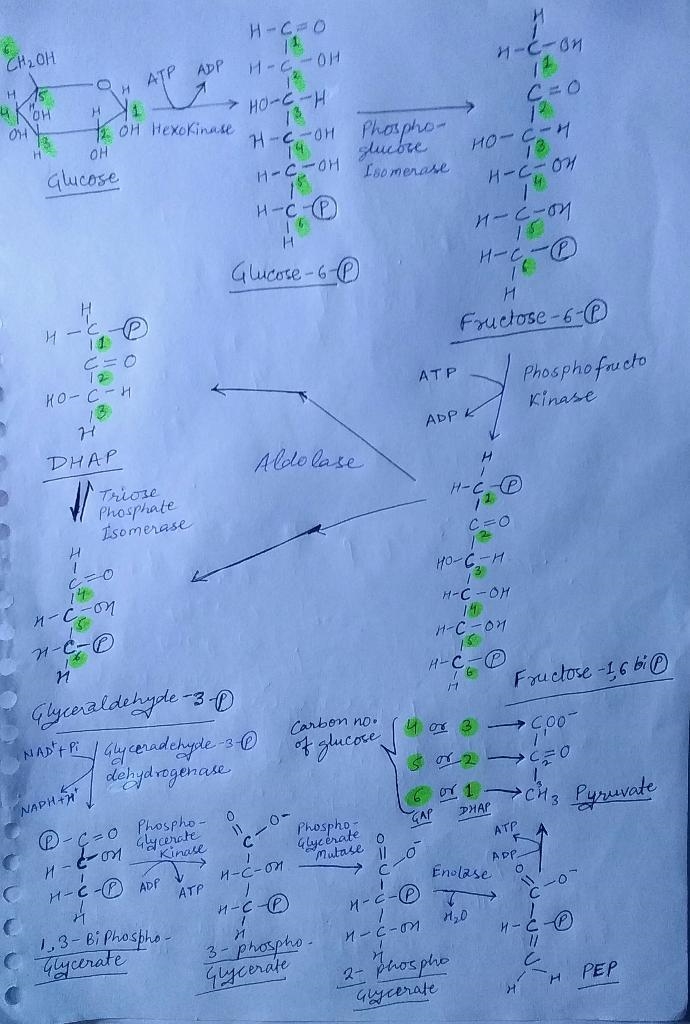 6
CH2OH
O
H
5
H
4
H
OH
H
1
OH
3
2
OH
H
OH
Glucose
ATP ADP
Hexokinase
H-C=O
1
H-C-OH
2
HO-C-H
3
H-C-OH
4
H-C-OH
5
H-C-Ⓟ
6
H
Glucose-6-Ⓟ
Phospho-
glucose
Isomerase
H
H-C-OH
1
C=O
2
HO-C-H
3
H-C-OH
4
H-C-OH
5
H-C-Ⓟ
6
H
Fructose-6-Ⓟ
ATP
ADP
Phosphofructo
Kinase
H
H-C-Ⓟ
1
C=O
2
HO-C-H
3
H-C-OH
4
H-C-OH
5
H-C-Ⓟ
6
H
Fructose-1,6 biⓅ
Aldolase
H
H-C-Ⓟ
1
C=O
2
HO-C-H
3
H
DHAP
Triose
Phosphate
Isomerase
H
C=O
4
H-C-OH
5
H-C-Ⓟ
6
H
Glyceraldehyde-3-Ⓟ
NAD++Pi
NADH+H+
Glyceradehyde-3-Ⓟ
dehydrogenase
Carbon no.
of glucose
4 or 3 → COO-
5 or 2 → C=O
2
6 or 1 → CH3 Pyruvate
3
GAP DHAP
Ⓟ-C=O
H-C-OH
H-C-Ⓟ
H
1,3-BiPhospho-
Glycerate
Phospho-
Glycerate
Kinase
ADP ATP
O O-
C
H-C-OH
H-C-Ⓟ
H
3-phospho-
Glycerate
Phospho-
Glycerate
Mutase
O
C O-
H-C-Ⓟ
H-C-OH
H
2-phospho
Glycerate
Enolase
H2O
ATP
ADP
O
C-O-
H-C-Ⓟ
C
H H
PEP